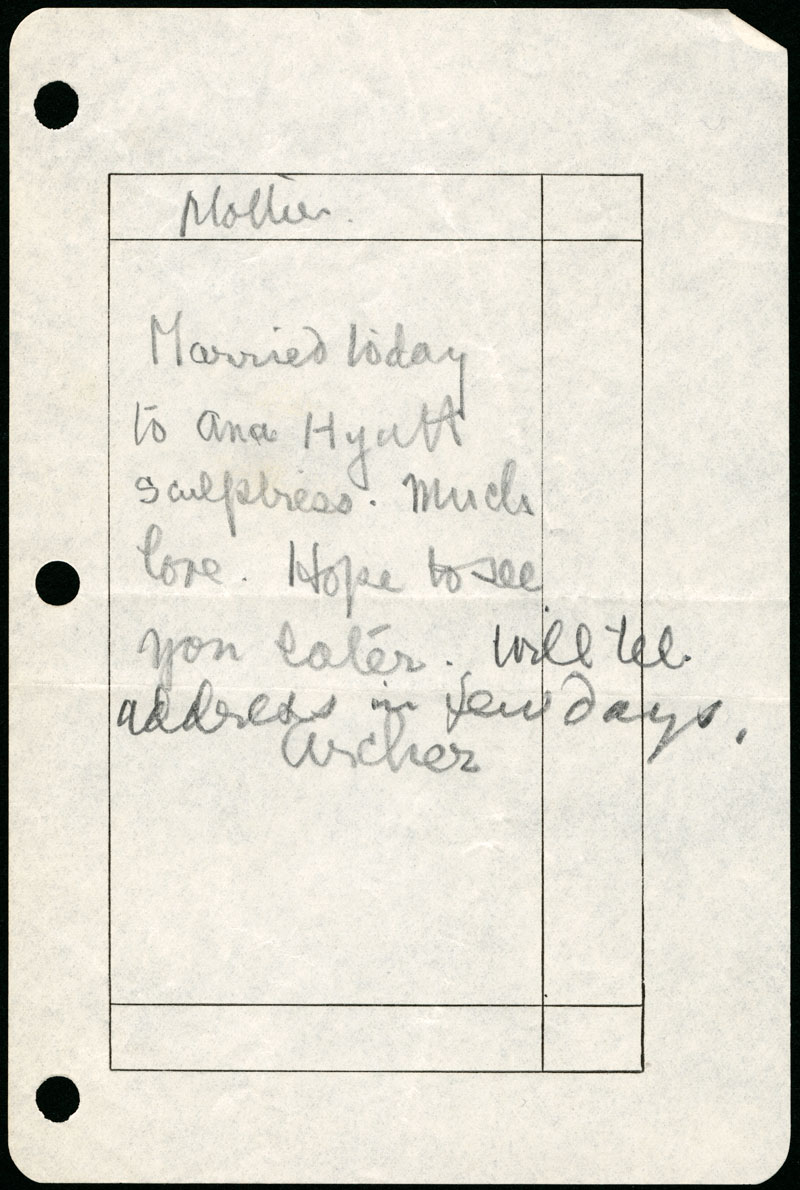 Mother.
Married today
to Ana Hyatt
sculptress. Much
love. Hope to see
you later. Will tel.
address in few days.
Archer